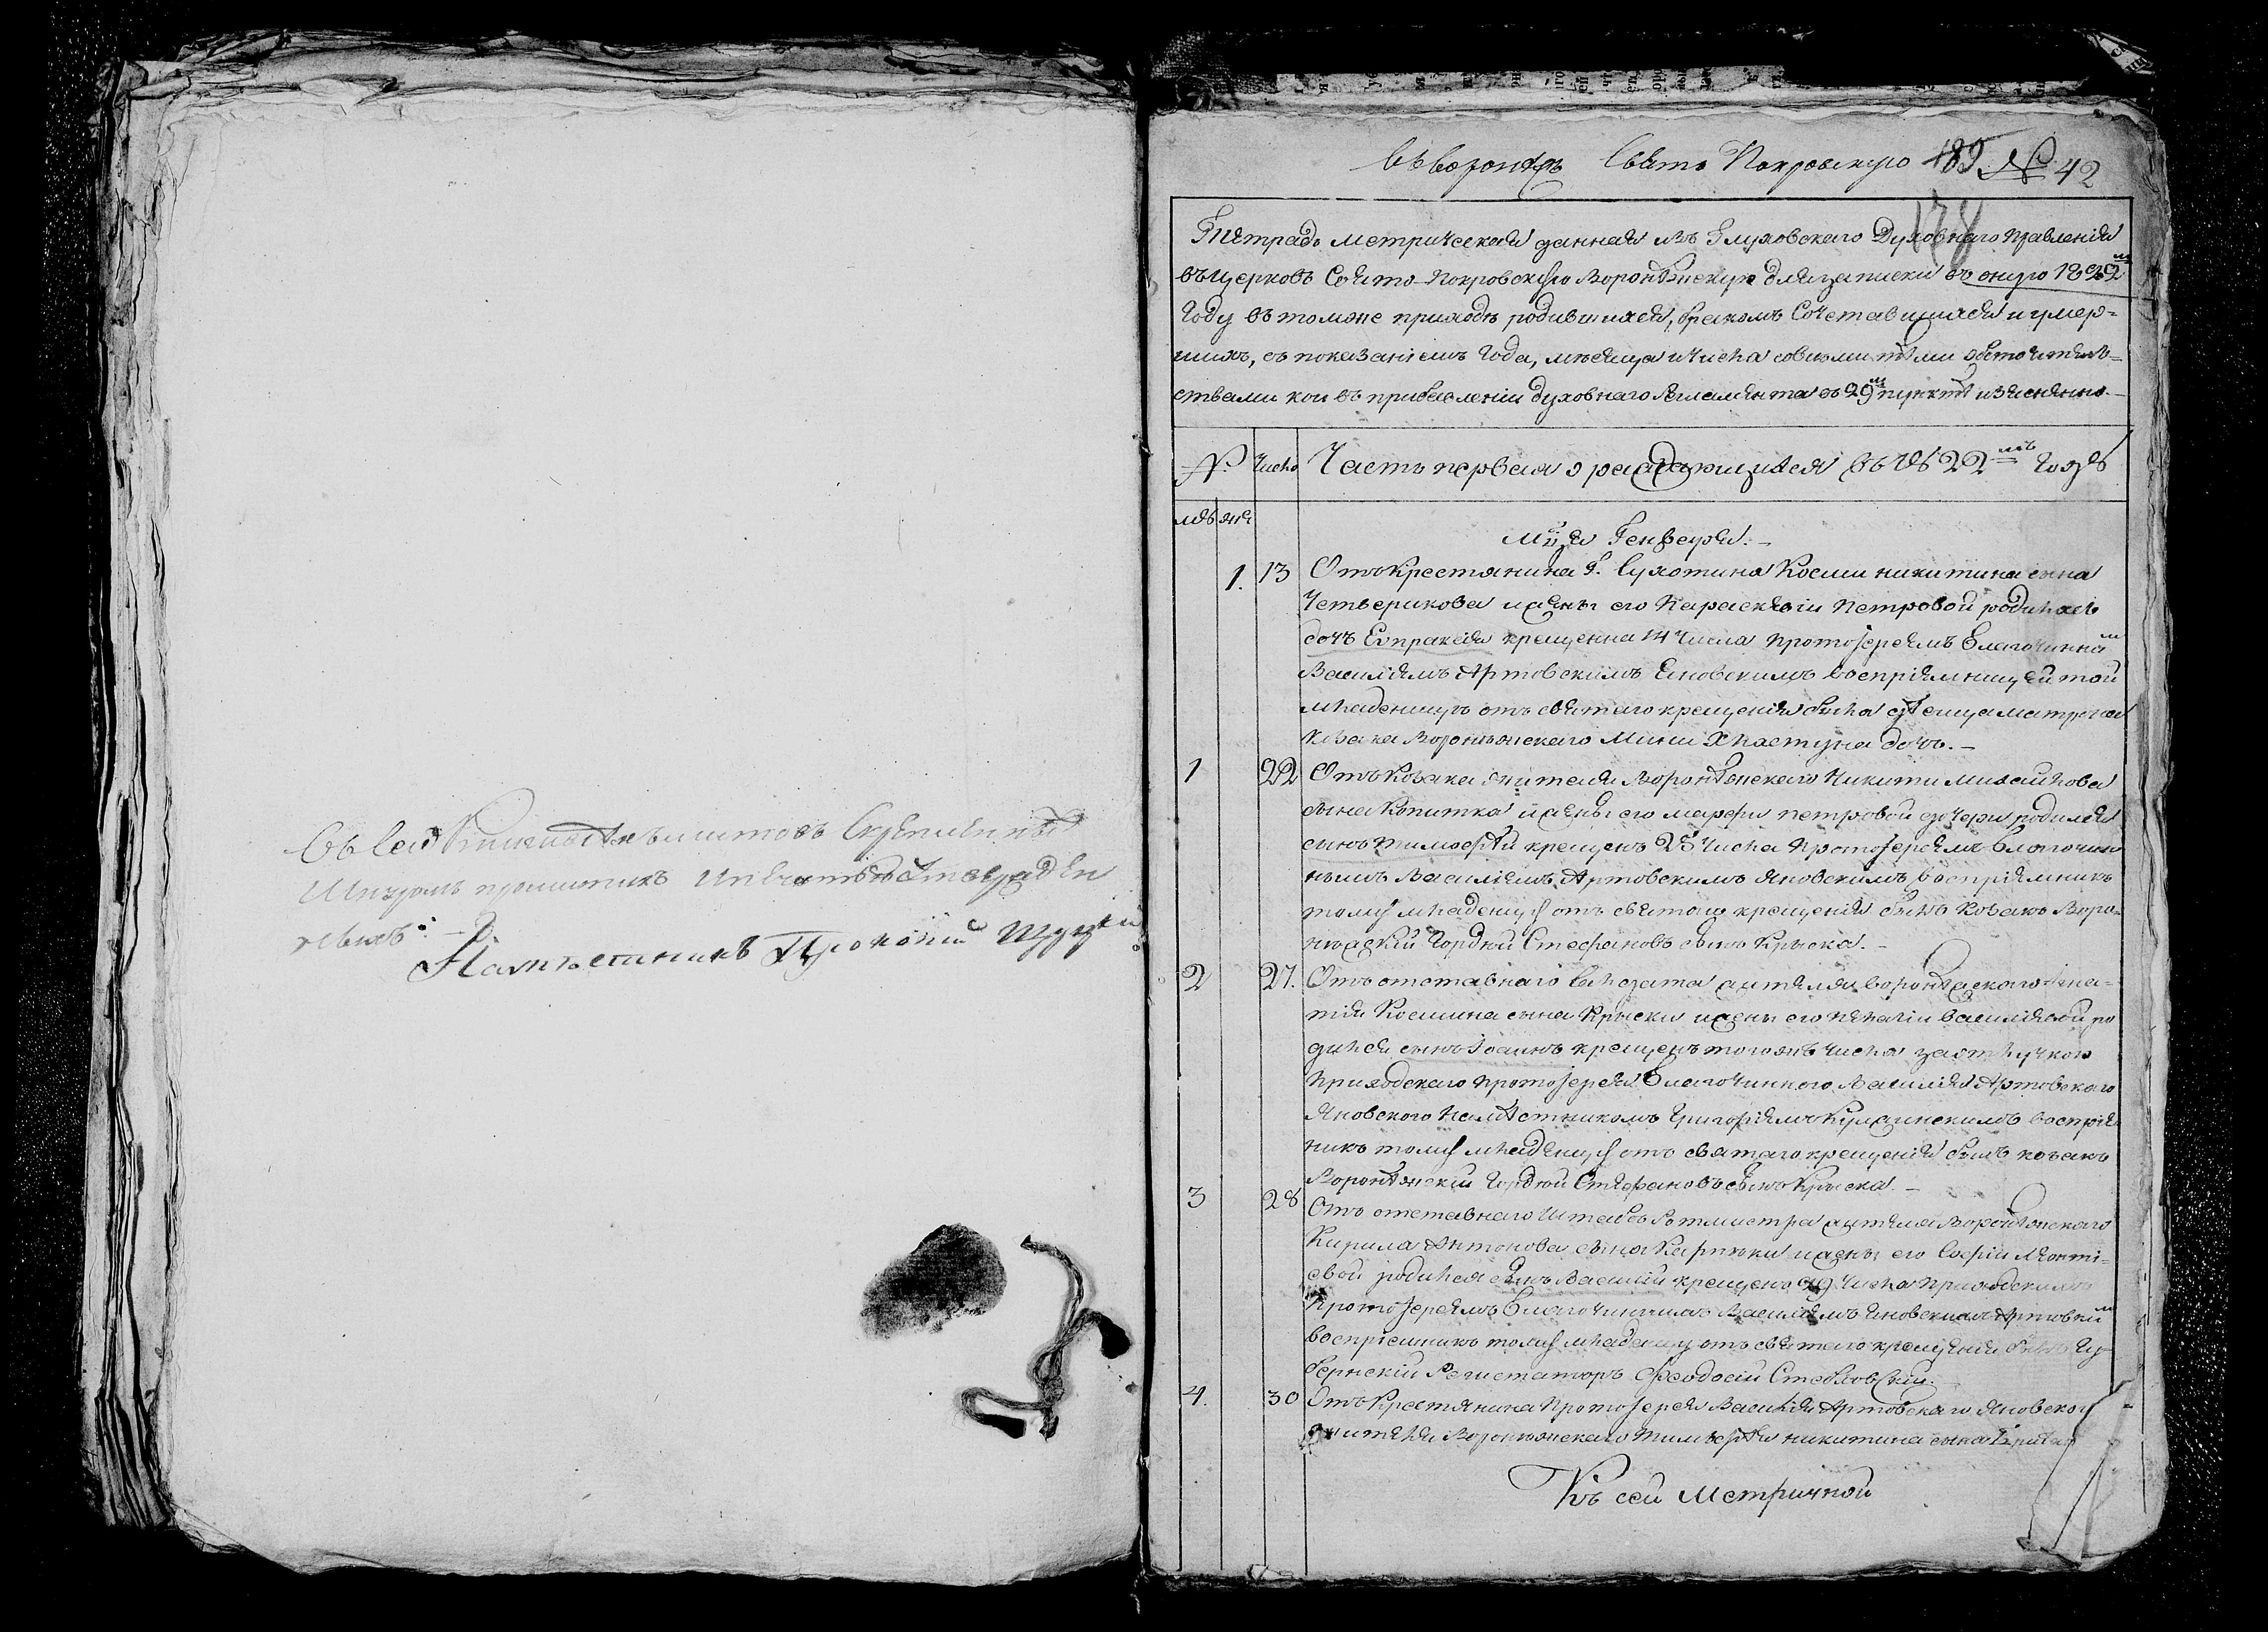 Въ сей Книги листовъ Скрепленныхъ
Шнуромъ прошитихъ
Наместникъ Прокопий
Въ Воронежъ Свято Покровскую 189 № 42
178
Тетрадь метрическая данная изъ Глуховского Духовного правления
въ церковь Свято-Покровскую Воронѣжскую для записки въ оную 1822м
году въ томже приходѣ родившихся, бракомъ Сочетавшихся и умер=
шихъ, съ показаніемъ года, мѣсяца и числа со всѣми тѣми обстоятель=
ствами кои въ прибавленіи духовнаго Регламента въ 29м пунктѣ изъясненно.
№. Число Часть первая о раждающихся въ 1822мъ годѣ
мѣ же
Мца Генваря.
1. 13 Отъ Крестянина Г. Сухотина Космы Никитина сина
Четверикова и жены его Параскевіи Петровой родилась
дочь Евпраксія крещенна 14 числа Протоіереемъ Благочинним
Василіемъ Артовскимъ Яновскимъ восприемницей той
младеницѣ отъ святаго крещенія была дѣвица Матрона
козака Воронѣжскаго Мини Хластуна дочь.
1 22 Отъ Козака жителя Воронѣжскаго Никити Михайлова
сына Копитка и жены его Марфи Петровой дочери родился
синъ Тимофѣй крещенъ 25 числа Протоіереемъ Благочин
нымъ Василіемъ Артовскимъ Яновскимъ восприемникъ
тому младенцу отъ святого крещенія былъ козакъ Воро
нѣжскій Гордѣй Стефановъ сынъ Криска.
2 27. Отъ отставнаго Солдата жителя Воронѣжскаго Игна=
тія Космина сына Криски и жены его Пелагіи Василіевой ро
дился сынъ Іоаннъ крещенъ того жъ числа за отлучкою
Приходскаго Протоіерея Благочинного Василія Артовскаго
Яновского Намѣстникомъ Григоріемъ восприем
никъ тому младенцу отъ святаго крещенія былъ козакъ
Воронѣжскій Гордѣй Стефановъ сынъ Криска
3 28 Отъ отставнаго Штабъ Ротмистра жителя Воронѣжскаго
Кирила Антонова сына Карпеки и жены его Софіи Леонті=
евой родился сынъ Василій крещенъ 29 числа Приходскимъ
Протоіереемъ Благочиннимъ Василіемъ Яновскимъ Артовским
восприемникъ тому младенцу отъ святаго крещенія былъ Гу=
бернскій Регистраторъ Феодосій
4. 30 Отъ Крестянина Протоіерея Василія Артовскаго Яновскаго
жителя Воронѣжскаго Тимофея Никитина сына
Къ сей Метричной